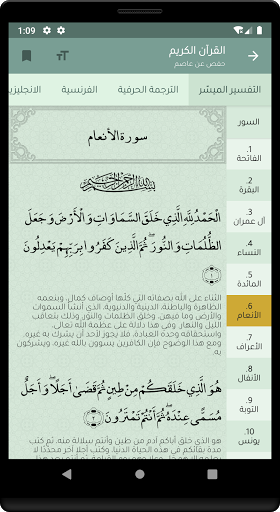 1:09
القرآن الكريم
حفص عن عاصم
التفسير الميسّر
الترجمة الحرفية
الفرنسية
الانجليزية
السور
1.
الفاتحة
2.
البقرة
3.
آل عمران
4.
النساء
5.
المائدة
6.
الأنعام
7.
الأعراف
8.
الأنفال
9.
التوبة
10.
يونس
سورة الأنعام
بسم الله الرحمن الرحيم
الْحَمْدُ لِلَّهِ الَّذِي خَلَقَ السَّمَاوَاتِ وَالْأَرْضَ وَجَعَلَ
الظُّلُمَاتِ وَالنُّورَ ۖ ثُمَّ الَّذِينَ كَفَرُوا بِرَبِّهِمْ يَعْدِلُونَ
١
الثناء على الله بصفاته التي كلُّها أوصاف كمال، وبنعمه
الظاهرة والباطنة، الدينية والدنيوية، الذي أنشأ السموات
والأرض وما فيهن، وخلق الظلمات والنور وذلك بتعاقب
الليل والنهار. وفي هذا دلالة على عظمة الله تعالى،
واستحقاقه وحده العبادة، فلا يجوز لأحد أن يشرك به غيره.
ومع هذا الوضوح فإن الكافرين يسوون بالله غيره، ويشركون
به.
هُوَ الَّذِي خَلَقَكُمْ مِنْ طِينٍ ثُمَّ قَضَىٰ أَجَلًا ۖ وَأَجَلٌ
مُسَمًّى عِنْدَهُ ۖ ثُمَّ أَنْتُمْ تَمْتَرُونَ ٢
هو الذي خلق أباكم آدم من طين وأنتم سلالة منه، ثم كتب
مدة بقائكم في هذه الحياة الدنيا، وكتب أجلا آخر محدَّدًا لا